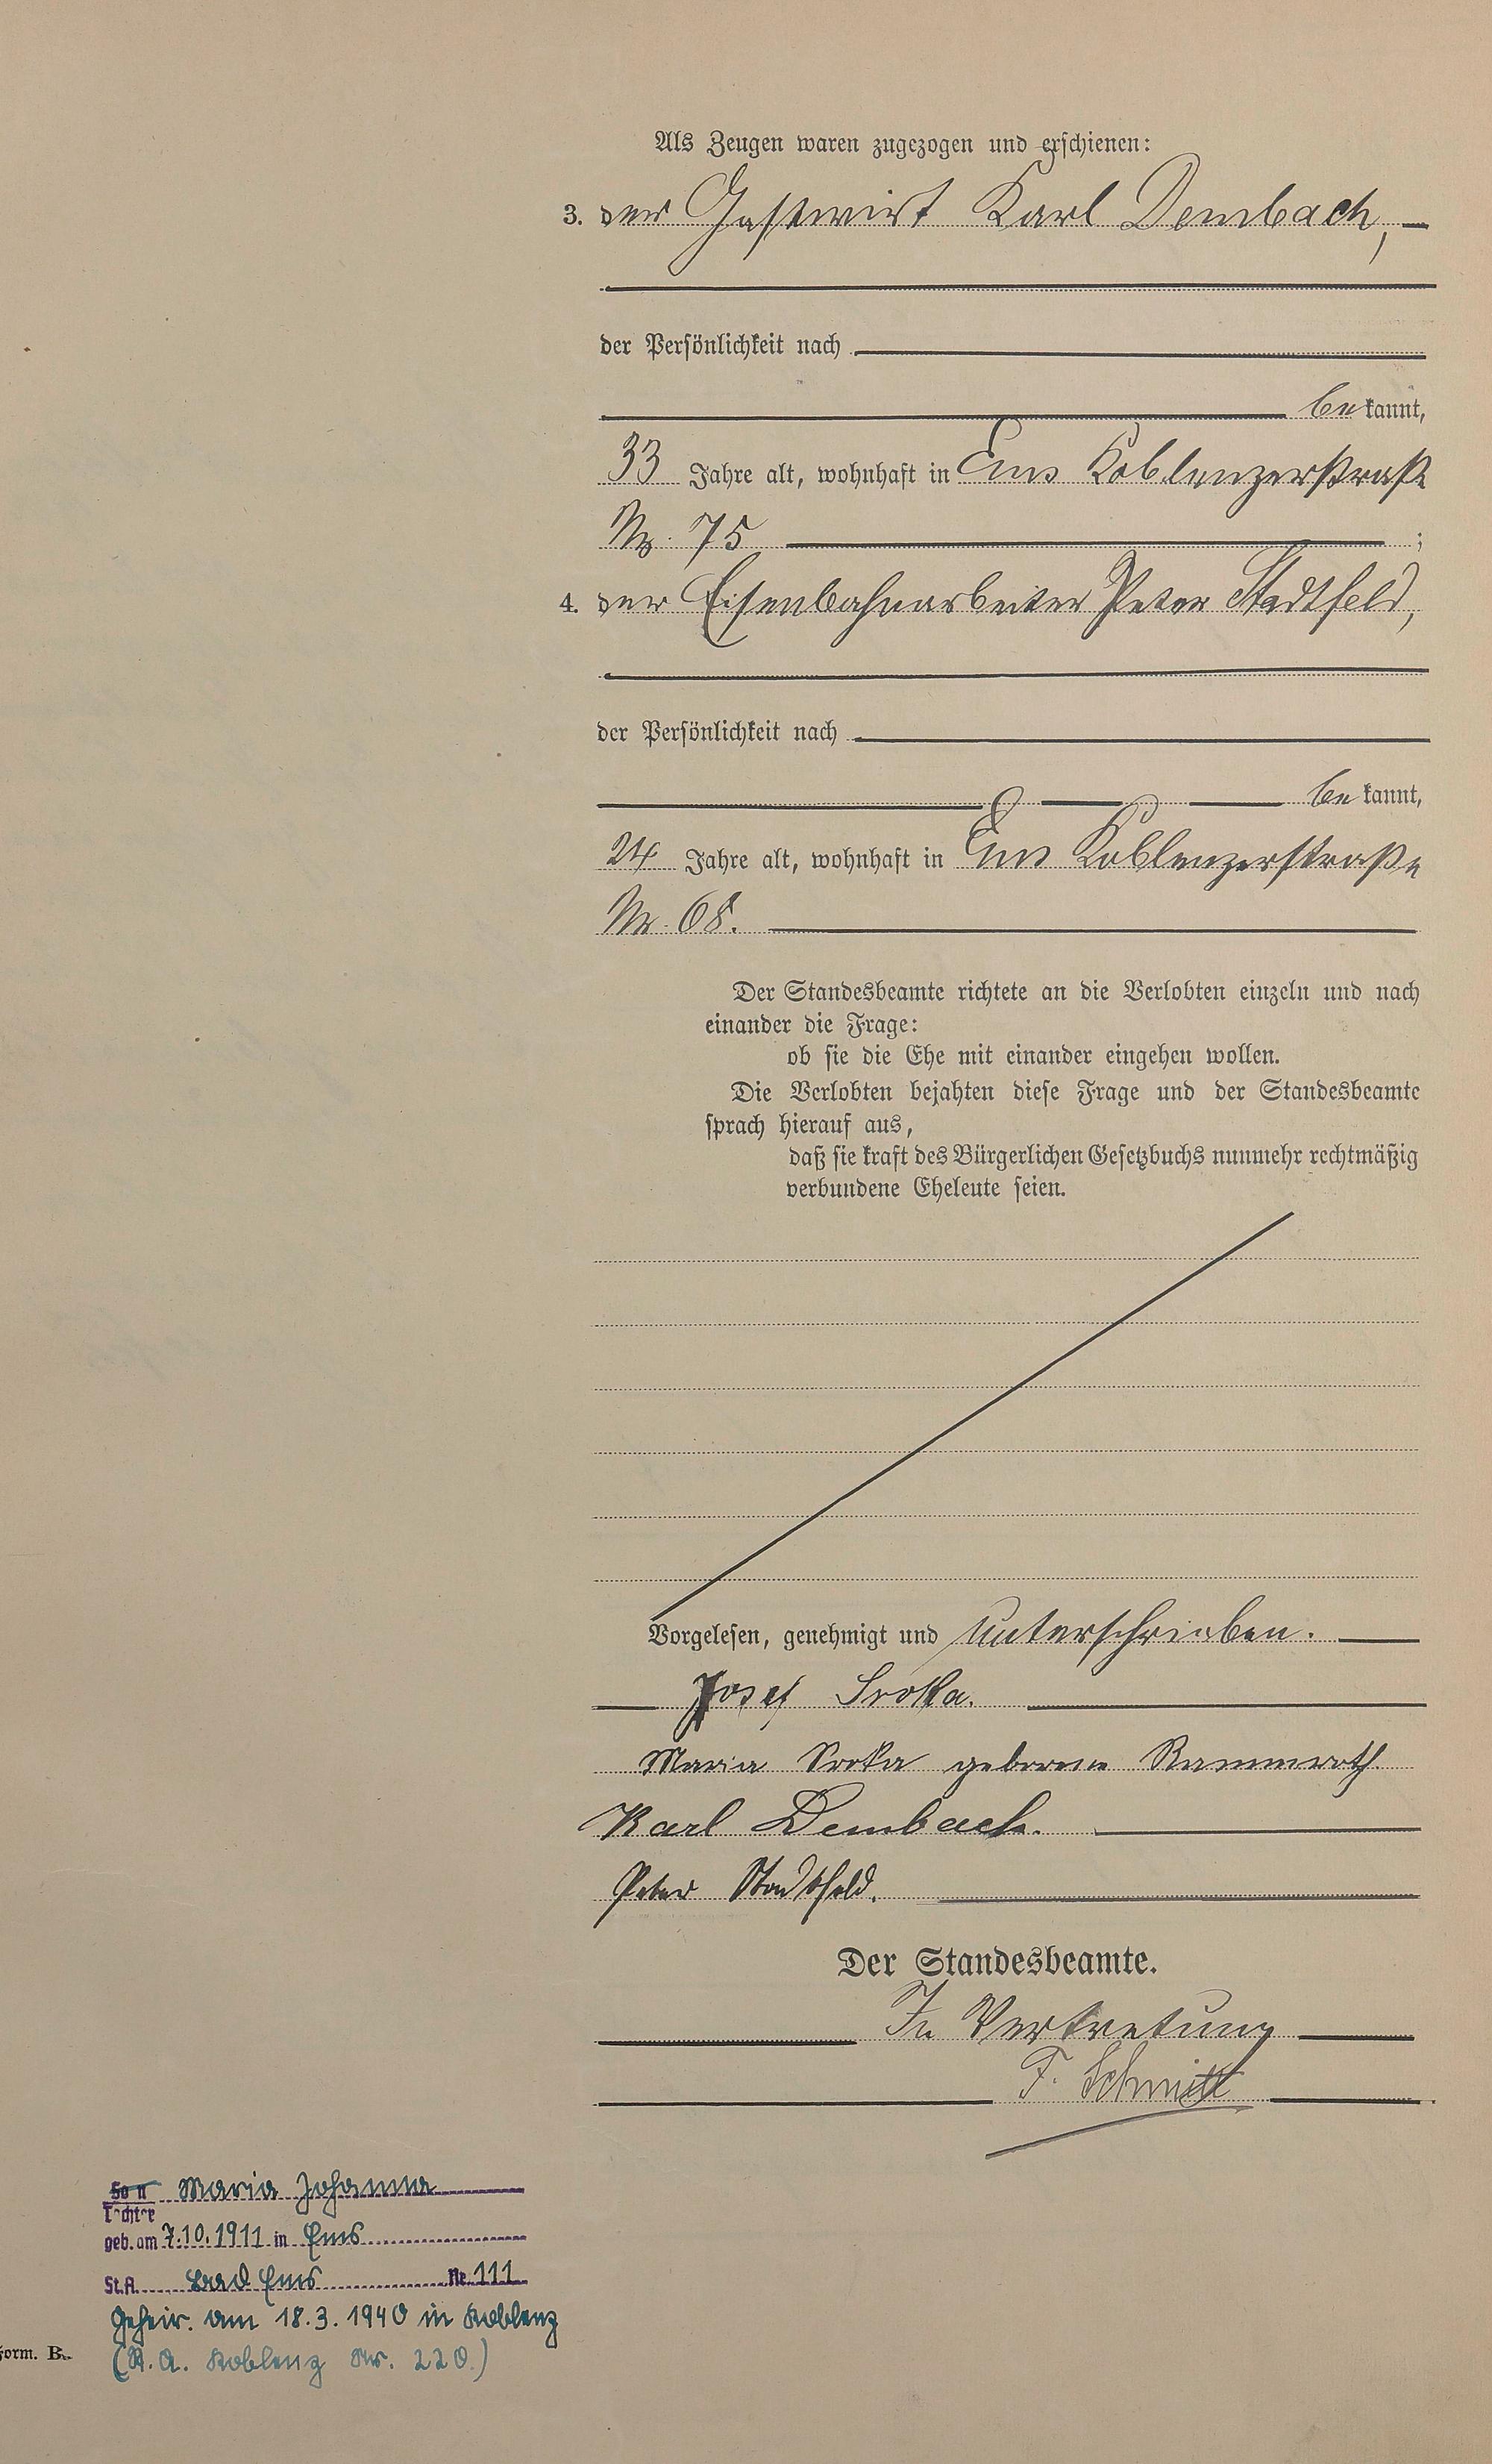 Als Zeugen waren zugezogen und erschienen:
3. der Gastwirt Karl Dembach,
der Persönlichkeit nach
be kannt,
33 Jahre alt, wohnhaft in Ems Koblenzerstraße
Nr. 75 ;
4. der Eisenbahnarbeiter Peter Stadtfeld,
der Persönlichkeit nach
be kannt,
24 Jahre alt, wohnhaft in Ems Koblenzerstraße
Nr. 68.
Der Standesbeamte richtete an die Verlobten einzeln und nach
einander die Frage:
ob sie die Ehe mit einander eingehen wollen.
Die Verlobten bejahten diese Frage und der Standesbeamte
sprach hierauf aus,
daß sie kraft des Bürgerlichen Gesetzbuchs nunmehr rechtmäßig
verbundene Eheleute seien.
Vorgelesen, genehmigt und unterschrieben.
Josef Sroka.
Maria Sroka geborene Rammroth.
Karl Dembach.
Peter Stadtfeld.
Der Standesbeamte.
In Vertretung
F. Schmitt
Sohn Maria Johanna
Tochter
geb. am 7.10.1911 in Ems
St.A. Bad Ems Nr. 111
Geheir. am 18.3.1940 in Koblenz
(St.A. Koblenz Nr. 220.)
Form. B.